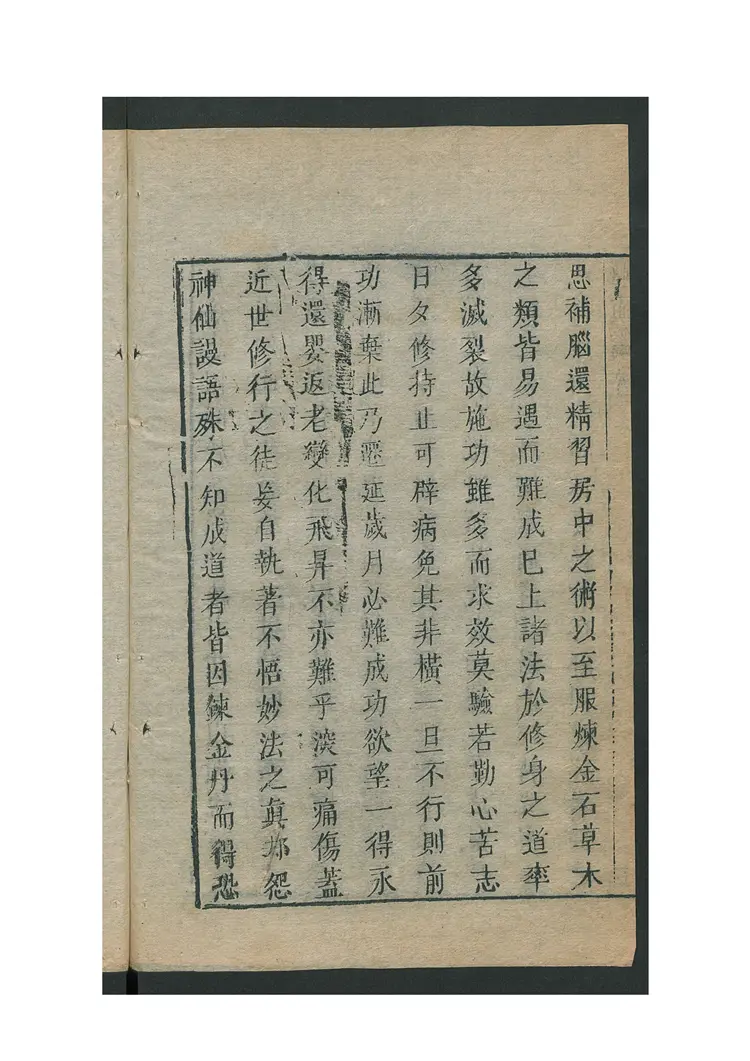 思補腦還精習房中之術以至服煉金石草木
之類皆易遇而難成已上諸法於修身之道率
多滅裂故施功雖多而求效莫驗若勤心苦志
日夕修持止可辟病免其非橫一旦不行則前
功漸棄此乃遷延歲月必難成功欲望一得永
得還嬰返老變化飛昇不亦難乎深可痛傷蓋
近世修行之徒妄自執著不悟妙法之真却怨
神仙謾語殊不知成道者皆因鍊金丹而得恐